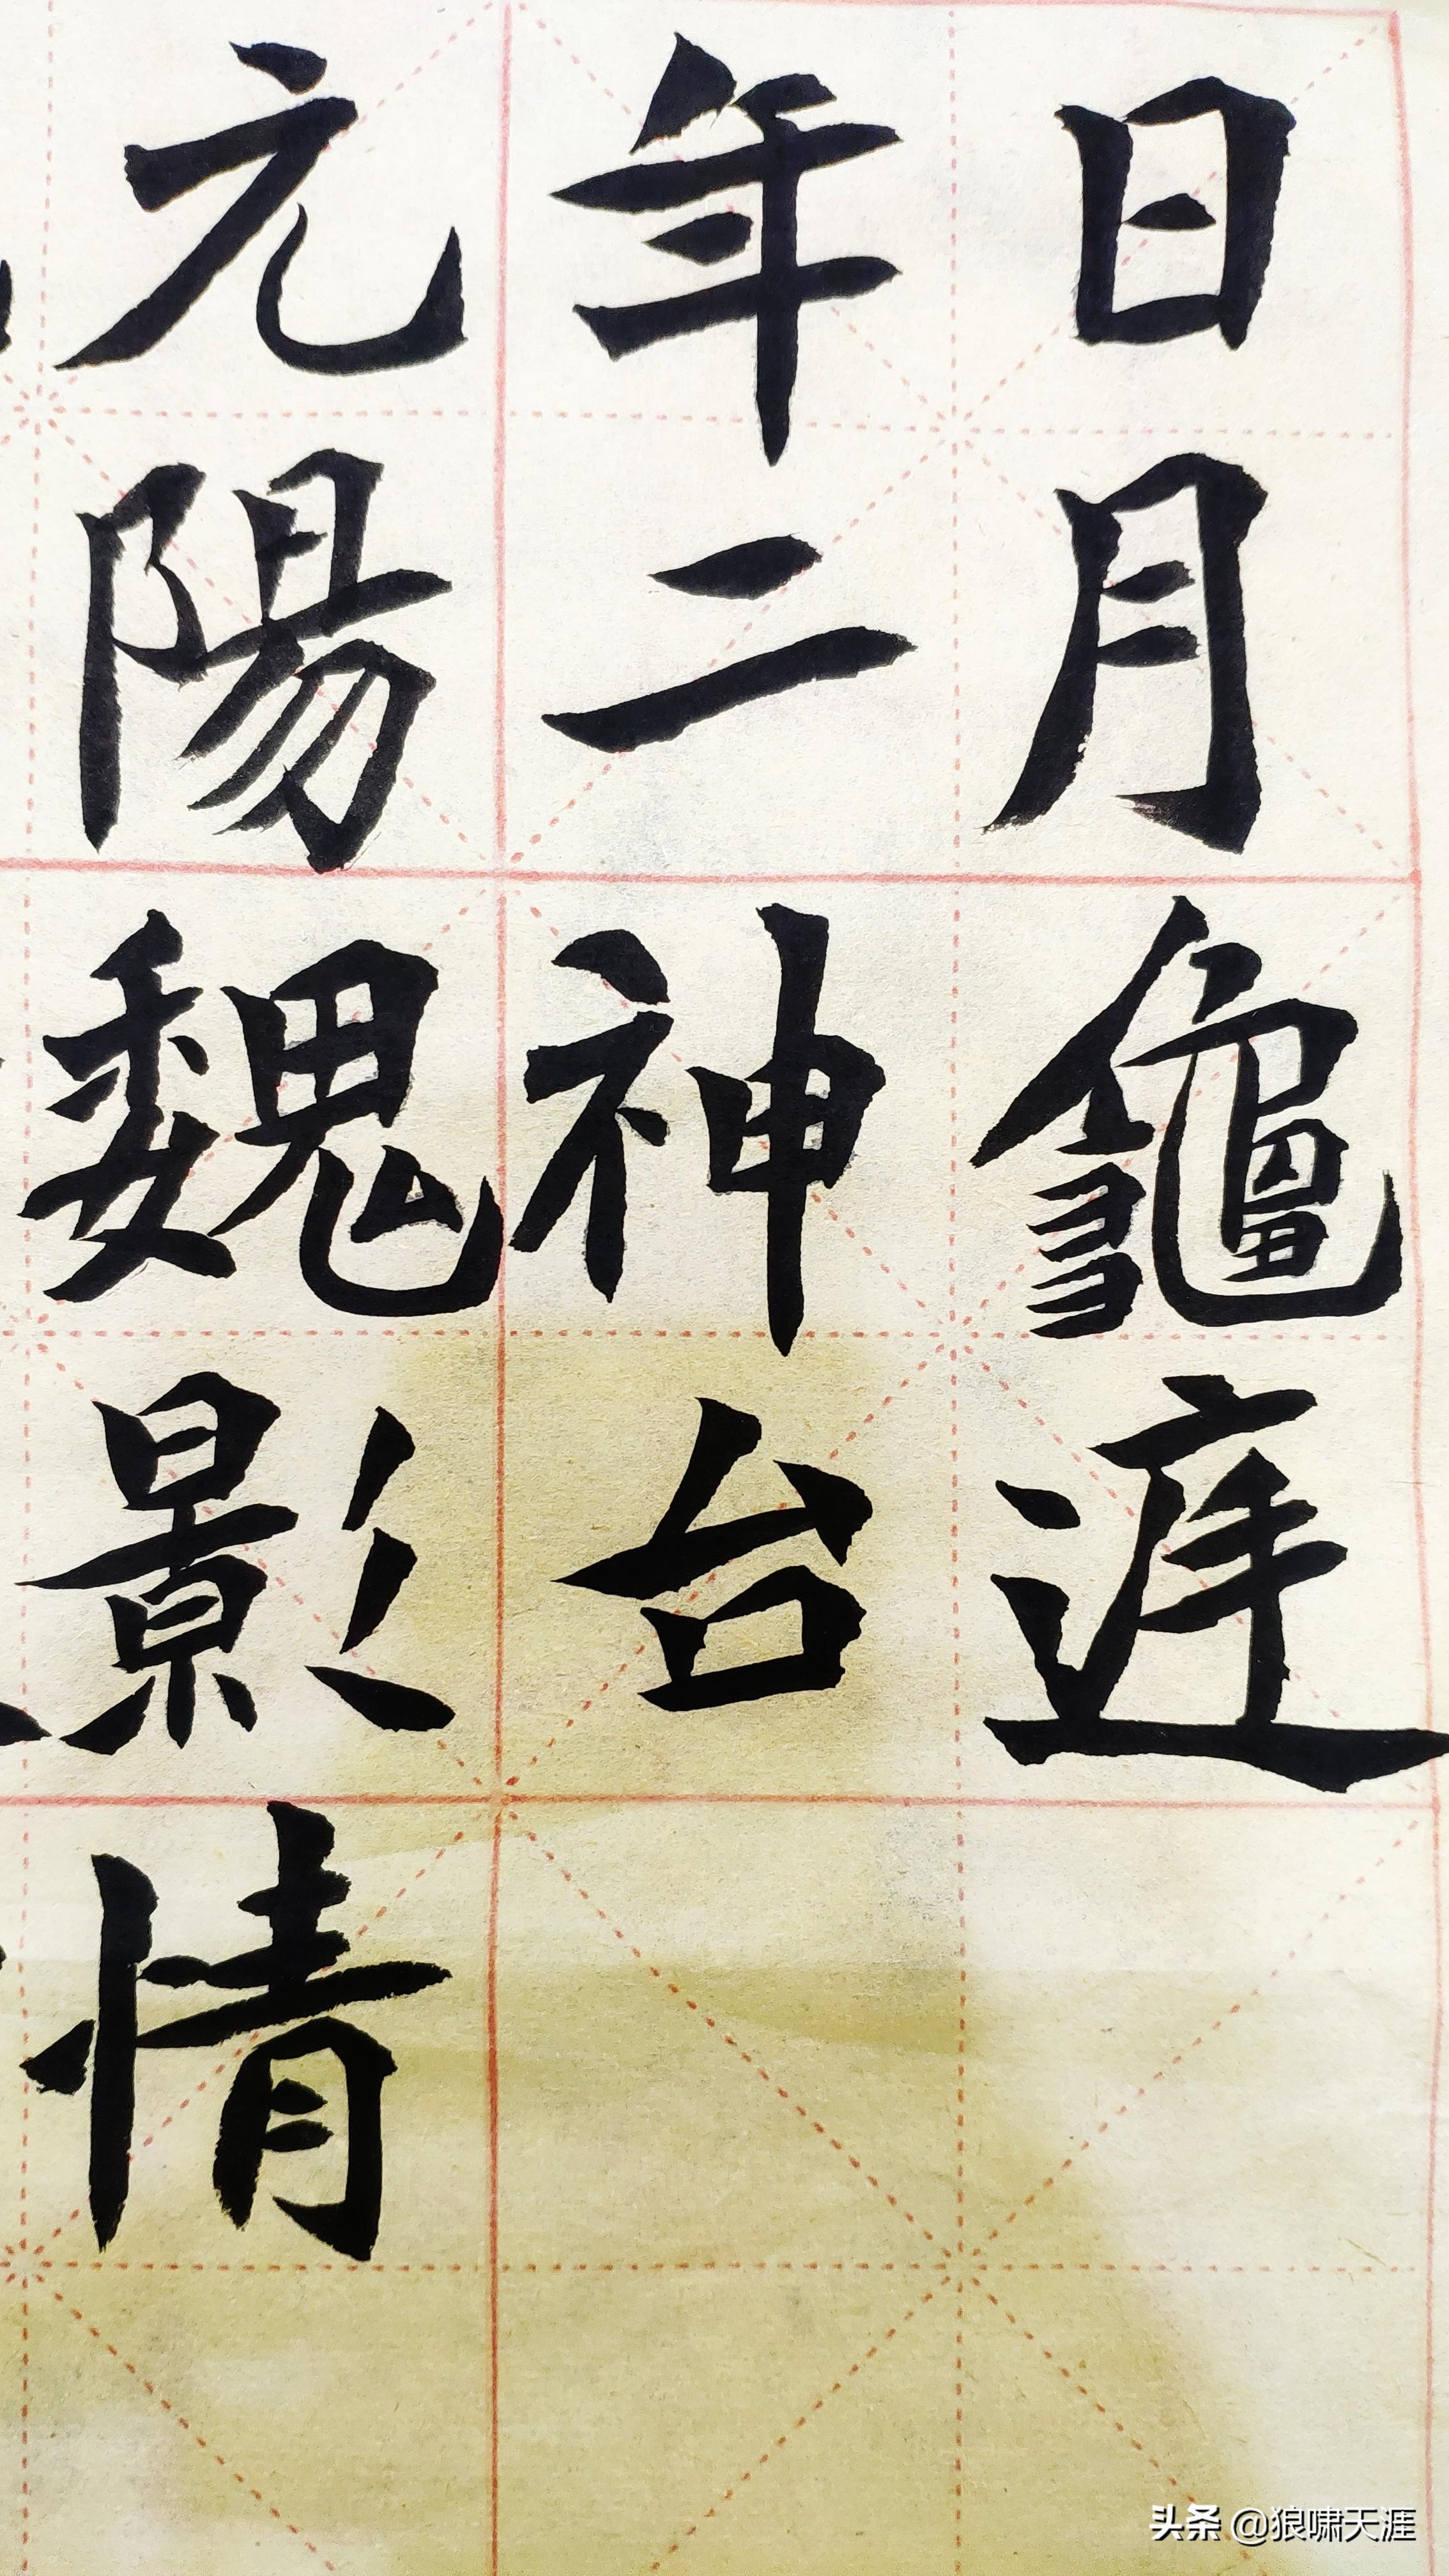 日月龜
年二神台
元陽魏影情
头条 @狼啸天涯